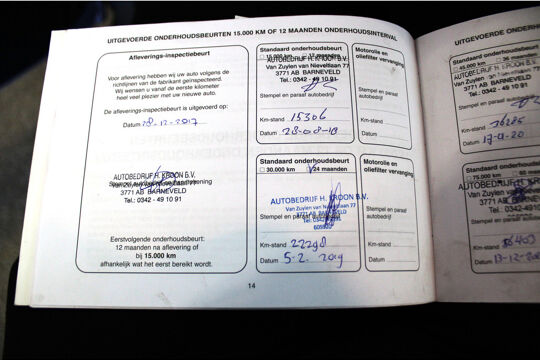 UITGEVOERDE ONDERHOUDSBEURTEN 15.000 KM OF 12 MAANDEN ONDERHOUDSINTERVAL
Afleverings-inspectiebeurt
Voor aflevering hebben wij uw auto volgens de
richtlijnen van de fabrikant geïnspecteerd.
Wij wensen u vanaf de eerste kilometer
heel veel plezier met uw nieuwe auto.
De afleverings-inspectie is uitgevoerd op:
Datum 28-12-2017
AUTOBEDRIJF H. KROON B.V.
Van Zuylen van Nieveltlaan
3771 AB BARNEVELD
Tel.: 0342 - 49 10 91
Eerstvolgende onderhoudsbeurt:
12 maanden na aflevering of
bij 15.000 km
afhankelijk wat het eerst bereikt wordt.
Standaard onderhoudsbeurt
15.000 km 12 maanden
AUTOBEDRIJF H. KROON B.V.
Van Zuylen van Nieveltlaan 77
3771 AB BARNEVELD
Tel.: 0342 - 49 10 91
Stempel en paraaf autobedrijf
Km-stand 15306
Datum 28-08-18
Motorolie en
oliefilter vervanging
Stempel en paraaf
autobedrijf
Km-stand
Datum
Standaard onderhoudsbeurt
30.000 km 24 maanden
AUTOBEDRIJF H. KROON B.V.
Van Zuylen van Nieveltlaan 77
3771 AB BARNEVELD
Tel. 0342
Stempel en paraaf
Km-stand
Datum 5-2-2019
Motorolie en
oliefilter vervanging
Stempel en paraaf
autobedrijf
Km-stand
Datum
14
UITGEVOERDE ONDERHOUDS
Standaard onderhoudsbeurt
45.000 km 36 maanden
AUTOBEDRIJF H. KROON B.V.
Van Zuylen van Nieveltlaan 77
3771 AB BARNEVELD
Tel.: 0342 - 49 10 91
Stempel en paraaf autobedrijf
Km-stand
Datum
Standaard onderhoudsbeurt
AUTOBEDRIJF H. KROON
Van Zuylen van Nieveltlaan
3771 AB BARNEVELD
Tel.: 0342 - 49 10 91
Km-stand
Datum